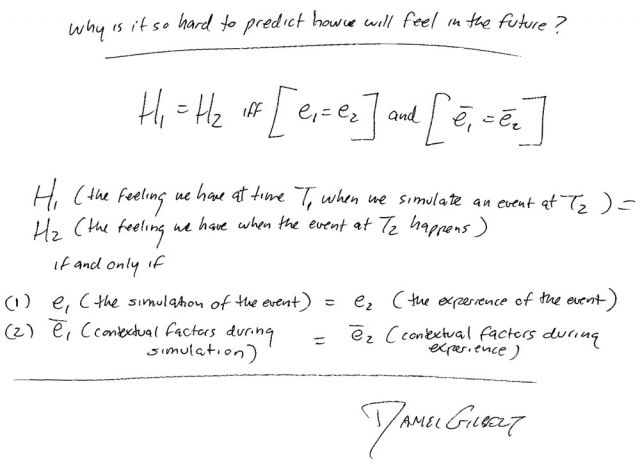 Why is it so hard to predict how we will feel in the future?
H₁ = H₂ iff [e₁ = e₂] and [ē₁ = ē₂]
H₁ (the feeling we have at time T₁ when we simulate an event at T₂) =
H₂ (the feeling we have when the event at T₂ happens)
if and only if
(1) e₁ (the simulation of the event) = e₂ (the experience of the event)
(2) ē₁ (contextual factors during simulation) = ē₂ (contextual factors during experience)
DANIEL GILBERT